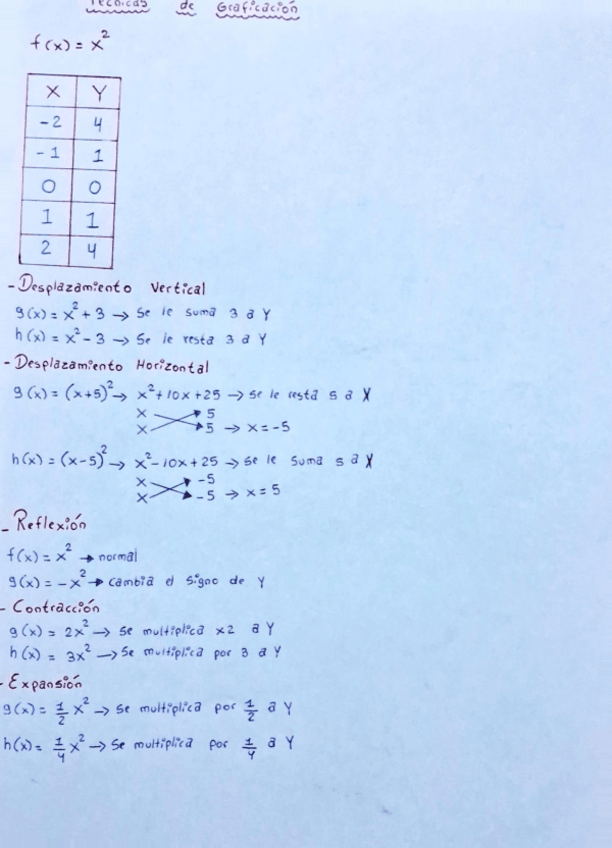 Técnicas de Graficación
f(x) = x²
X Y
-2 4
-1 1
0 0
1 1
2 4
- Desplazamiento Vertical
g(x) = x² + 3 → Se le suma 3 a Y
h(x) = x² - 3 → Se le resta 3 a Y
- Desplazamiento Horizontal
g(x) = (x+5)² → x² + 10x + 25 → Se le resta 5 a X
x 5
x 5 → x = -5
h(x) = (x-5)² → x² - 10x + 25 → Se le suma 5 a X
x -5
x -5 → x = 5
- Reflexión
f(x) = x² → normal
g(x) = -x² → cambia el signo de Y
- Contracción
g(x) = 2x² → Se multiplica x2 a Y
h(x) = 3x² → Se multiplica por 3 a Y
- Expansión
g(x) = 1/2 x² → Se multiplica por 1/2 a Y
h(x) = 1/4 x² → Se multiplica por 1/4 a Y